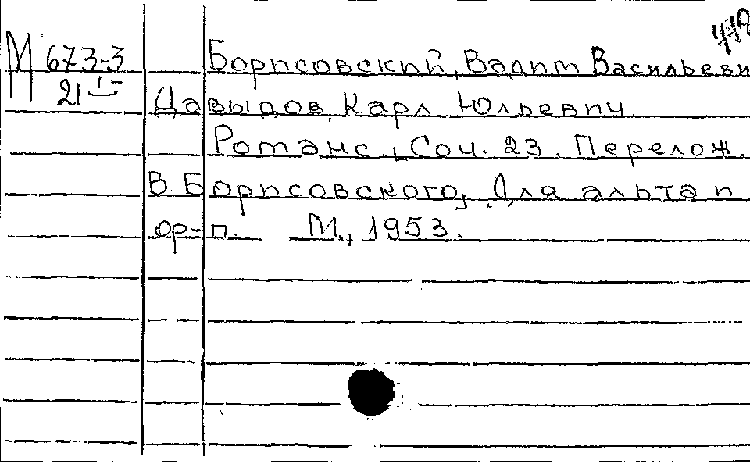 М 673-3 Борисовский, Вадим Васильеви
21 Давыдов, Карл Юльевич
Романс, Соч. 23. Перелож.
В. Борисовского, Для альта и
ор-п. М., 1953.